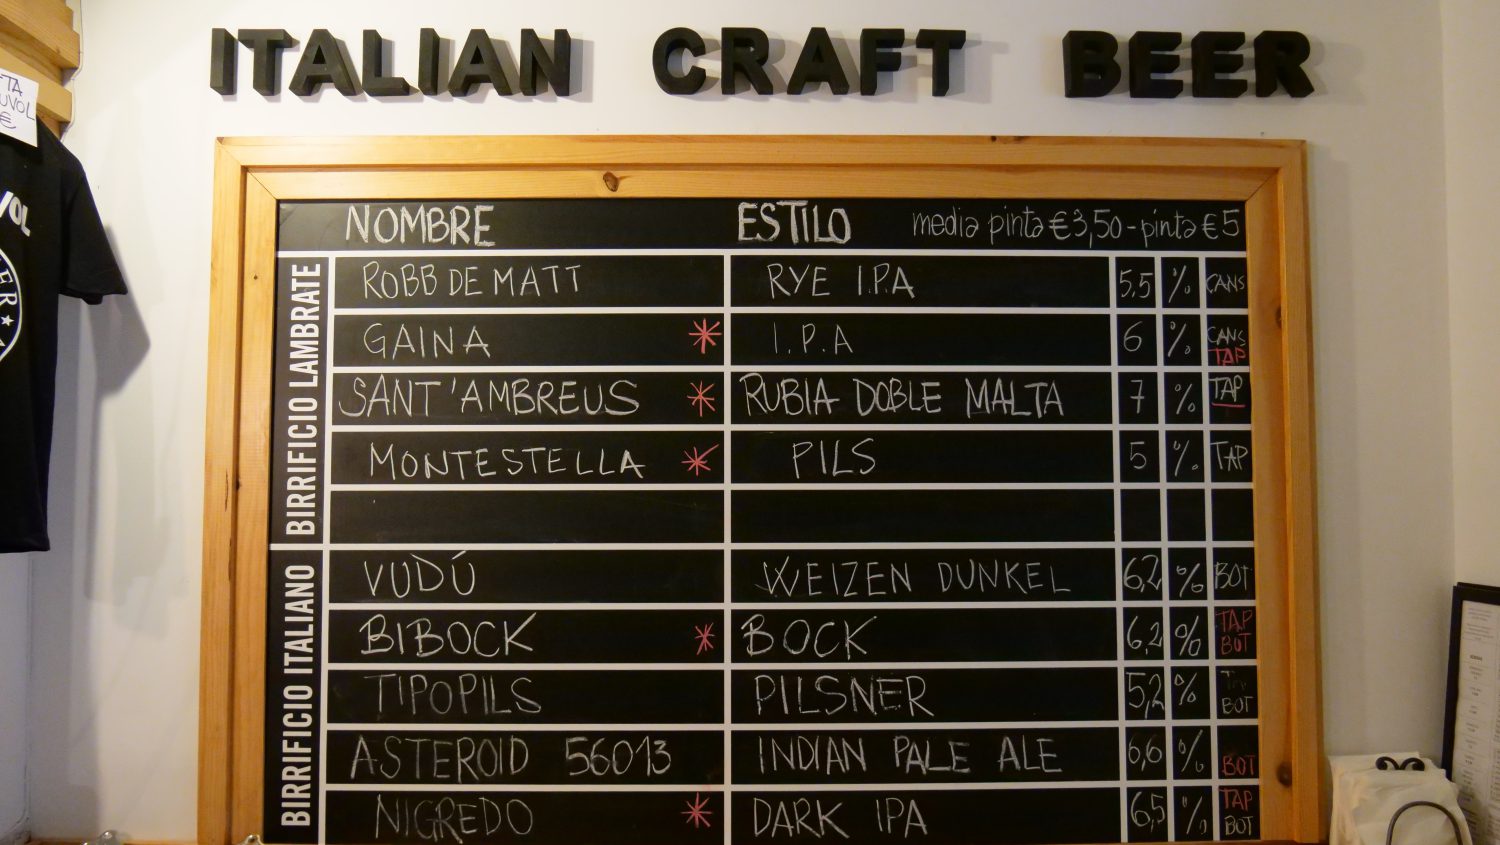 ITALIAN CRAFT BEER
NOMBRE ESTILO media pinta €3,50 - pinta €5
BIRRIFICIO LAMBRATE
ROBB DE MATT RYE I.P.A 5,5 % CANS
GAINA * I.P.A 6 % CANS TAP
SANT'AMBREUS * RUBIA DOBLE MALTA 7 % TAP
MONTESTELLA * PILS 5 % TAP
BIRRIFICIO ITALIANO
VUDÚ WEIZEN DUNKEL 6,2 % BOT
BIBOCK * BOCK 6,2 % TAP BOT
TIPOPILS PILSNER 5,2 % BOT
ASTEROID 56013 INDIAN PALE ALE 6,6 % BOT
NIGREDO * DARK IPA 6,5 % TAP BOT